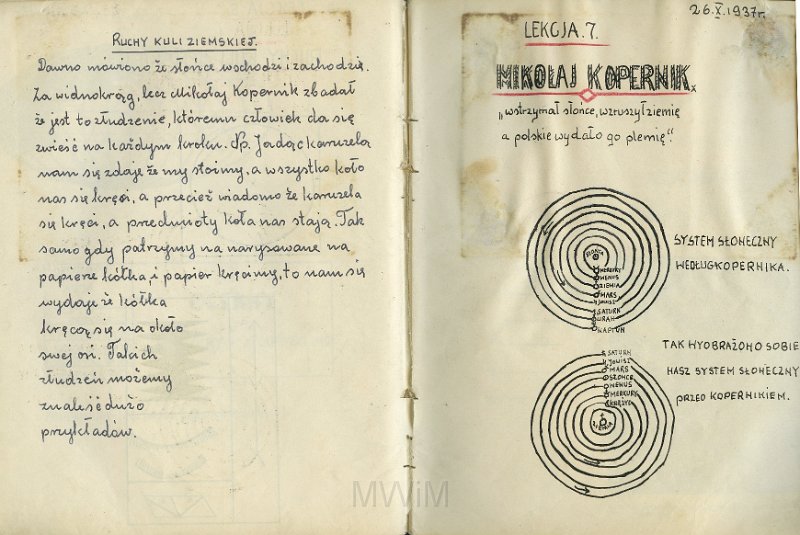 RUCHY KULI ZIEMSKIEJ.
Dawno mówiono że słońce wschodzi i zachodzi.
Za widnokrąg, lecz Mikołaj Kopernik zbadał
że jest to złudzenie, któremu człowiek da się
zwieść na każdym kroku. Np. Jadąc karuzelą
nam się zdaje że my stoimy, a wszystko koło
nas się kręci, a przecież wiadomo że karuzela
się kręci, a przedmioty koła nas stają. Tak
samo gdy patrzymy na narysowane na
papierze kółka, i papier kręcimy, to nam się
wydaje że kółka
kręcą się na około
swej osi. Takich
złudzeń możemy
znaleść dużo
przykładów.
26.X.1937r.
LEKCJA.7.
MIKOŁAJ KOPERNIK.
„wstrzymał słońce, wzruszył ziemię
a polskie wydało go plemię".
SŁOŃCE
MERKURY
WENUS
ZIEMIA
MARS
JOWISZ
SATURN
URAN
NAPTUN
SYSTEM SŁONECZNY
WEDŁUG KOPERNIKA.
SATURN
JOWISZ
MARS
SŁOŃCE
WENUS
MERKURY
KSIĘŻYC
ZIEMIA
TAK WYOBRAŻONO SOBIE
NASZ SYSTEM SŁONECZNY
PRZED KOPERNIKIEM.
MWiM